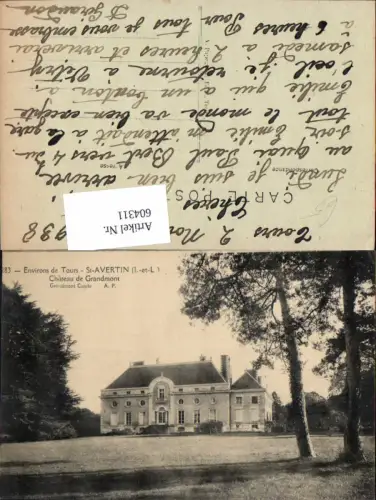 Tours 2 Nov 1938
Chéries
Lundi je suis bien arrivée
au quai Paul Bert vers 4 du
soir, Emilie m attendait à la gare
tout le monde va bien excepté
Emilie qui a un bouton à
l'oeil je retourne à Vitry
samedi à 2 heures et arriverai
à 6 heures Pour tous
je vous embrasse
CARTE POS
Artikel Nr.
604311
383 — Environs de Tours - St-AVERTIN (I.-et-L.)
Château de Grandmont
Grandmont Castle A. P.